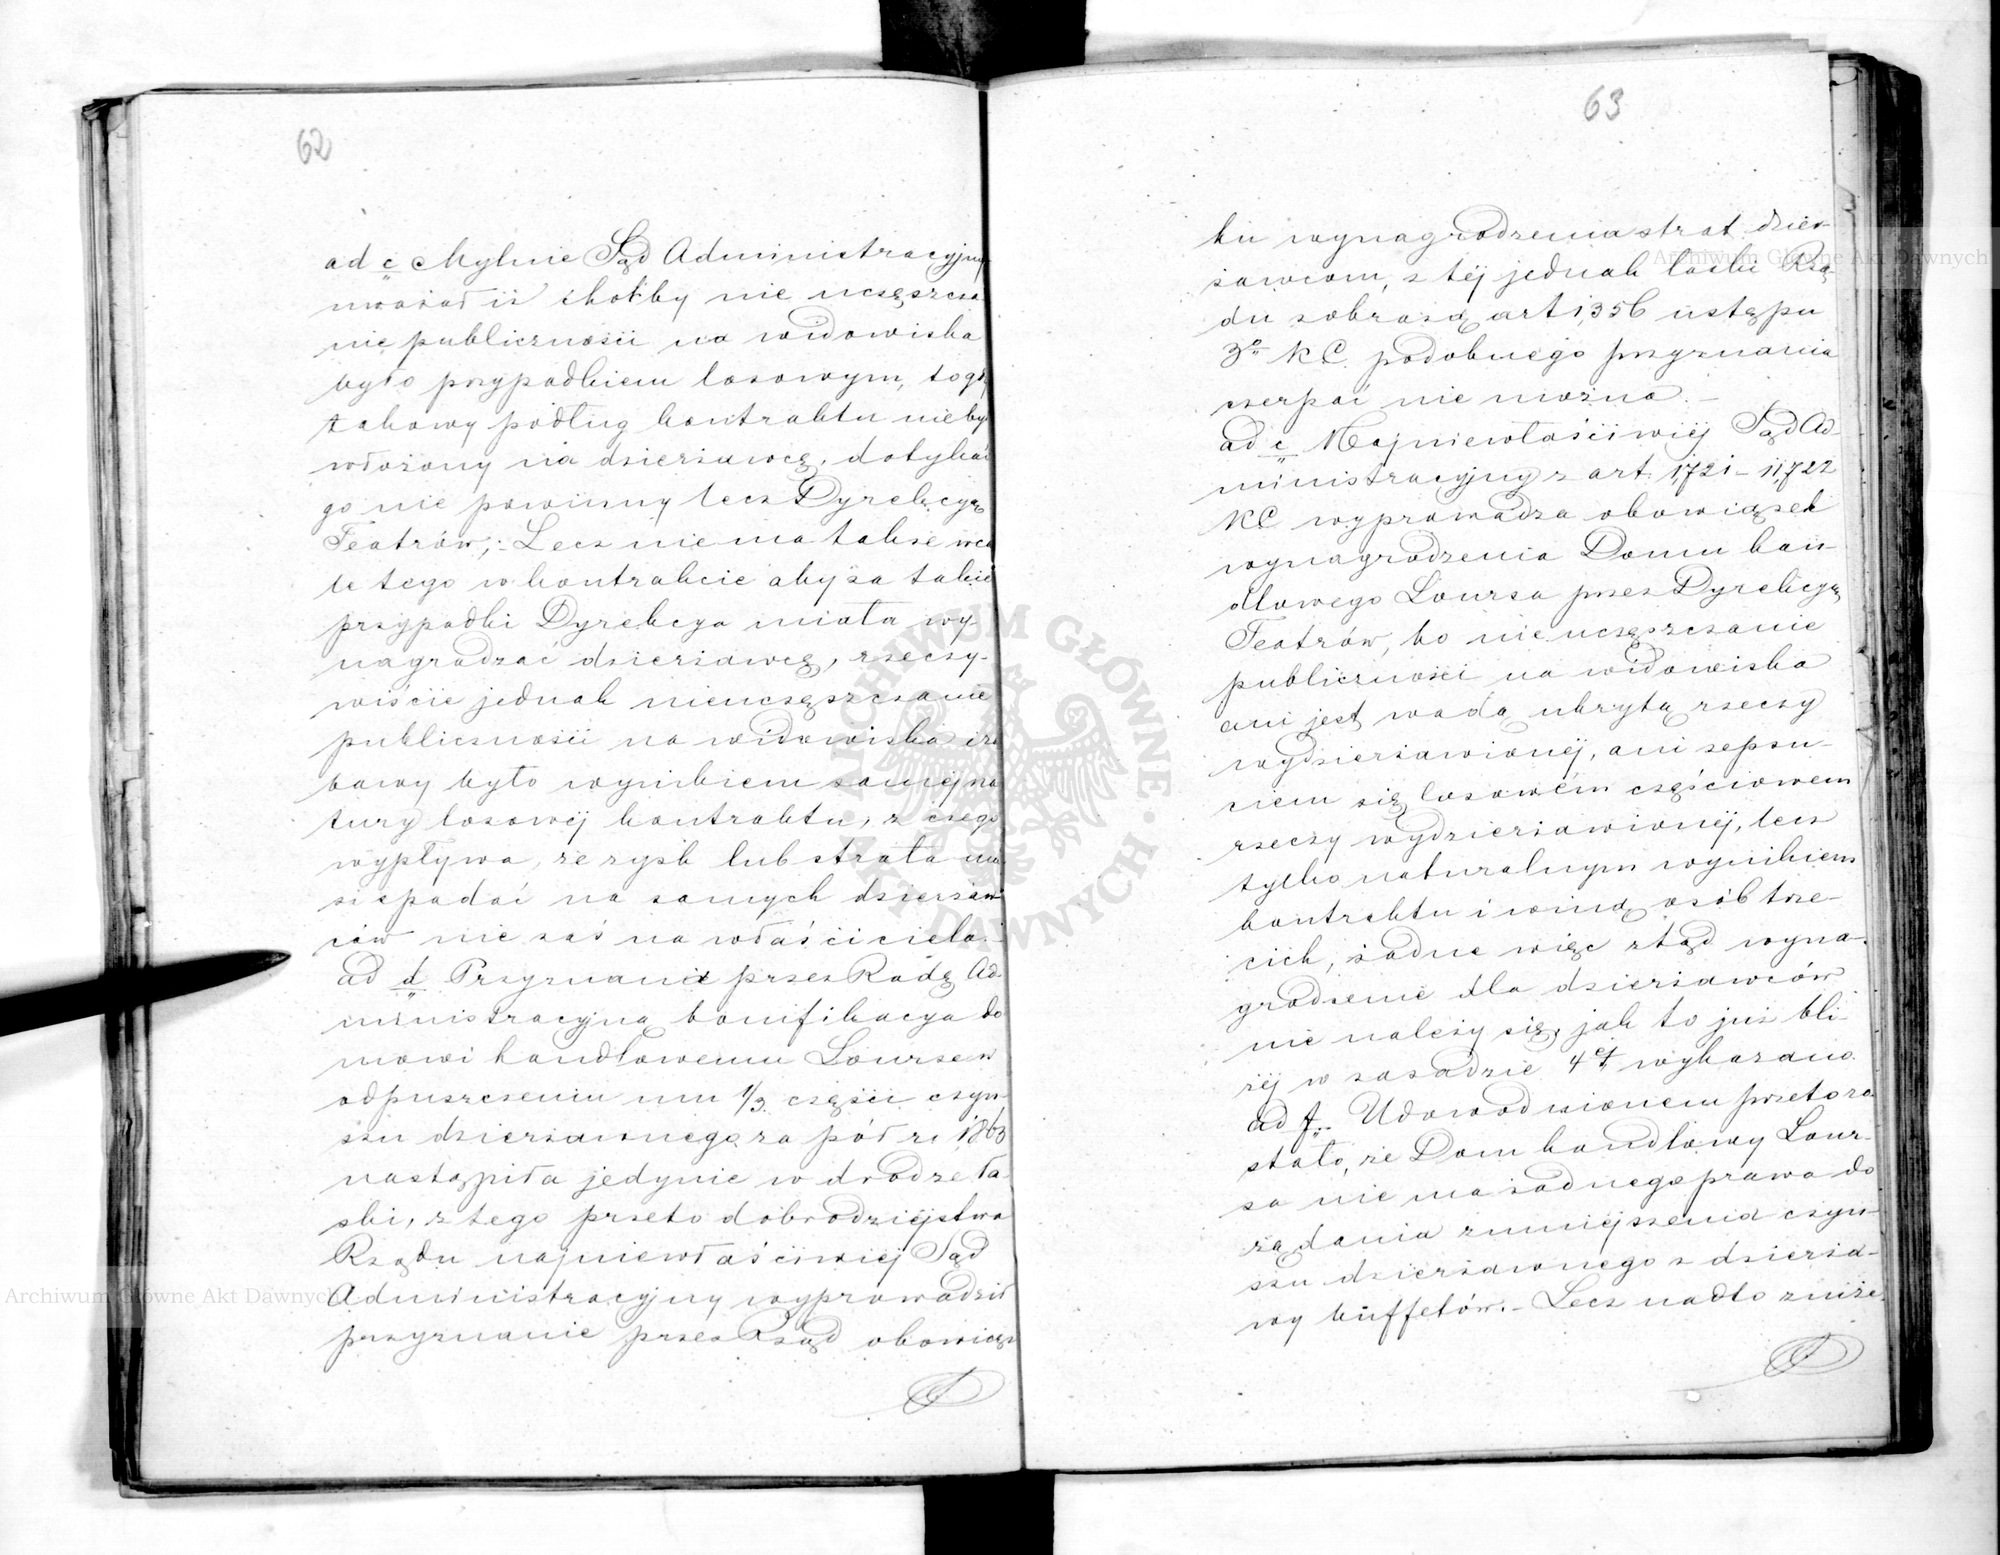 62
ad c Mylnie Sąd Administracyjny
uważał iż choćby nie uczęszcza
nie publiczności na widowiska
było przypadkiem losowym, to gdy
takowy podług kontraktu nie był
włożony na dzierżawcę, dotykać
go nie powinny lecz Dyrekcyą
Teatrów; Lecz nie ma także wca
le tego w kontrakcie aby za takie
przypadki Dyrekcya miała wy-
nagradzać dzierżawcę, rzeczy-
wiście jednak nieuczęszczanie
publiczności na widowiska i za
bawy było wynikiem samej na
tury losowéj kontraktu, z czego
wypływa, że zysk lub strata mu
si spadać na samych dzierżaw
ców nie zaś na właściciela.-
ad d Przyznanie przez Radę Ad-
ministracyjną bonifikacya do
mowi handlowemu Lourse w
odpuszczeniu mu 1/3 części czyn-
szu dzierżawnego za pół r. 1863
nastąpiła jedynie w drodze ła-
ski, z tego przeto dobrodziejstwa
Rządu najniewłaściwiej Sąd
Administracyjny wyprowadził
przyznanie przez Rząd obowiąz
63
ku wynagrodzenia strat dzier-
żawcom, z téj jednak łaski Rzą-
du z obrazą art 1,356 ustępu
3º KC. podobnego przyznania
czerpać nie można.-
ad e Najniewłaściwiéj Sąd Ad-
ministracyjny z art. 1,721 - 1,722
KC wyprowadza obowiązek
wynagrodzenia Domu han-
dlowego Loursa przez Dyrekcyą
Teatrów, bo nie uczęszczanie
publiczności na widowiska
ani jest wadą ukrytą rzeczy
wydzierżawionéj, ani zepsu-
ciem się losowém częściowem
rzeczy wydzierżawionéj, lecz
tylko naturalnym wynikiem
kontraktu i winą osób trze-
cich, żadne więc ztąd wyna-
grodzenie dla dzierżawców
nie należy się, jak to już bli-
żéj w zasadzie 4éj wykazano.
ad f. Udowodnionem przeto zo
stało, że Dom handlowy Lour-
sa nie ma żadnego prawa do
żądania zmniejszenia czyn-
szu dzierżawnego z dzierża-
wy buffetów.- Lecz nadto zniże